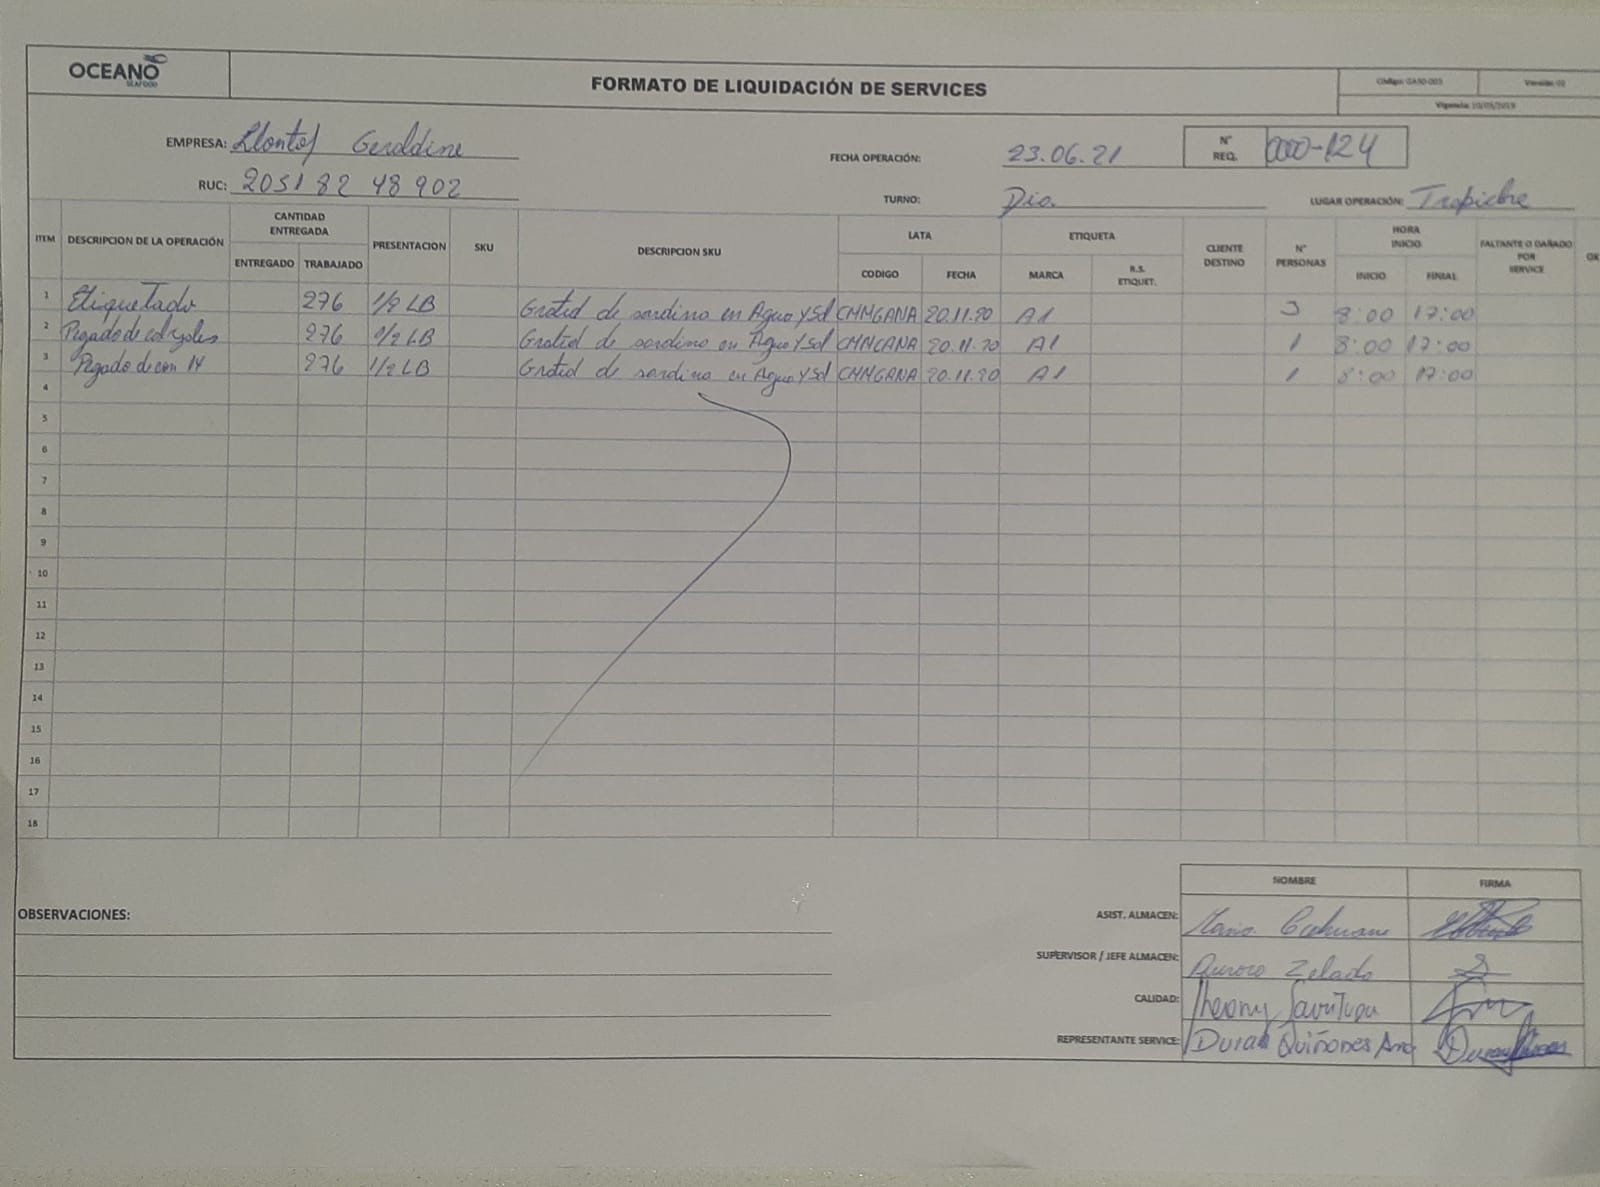 OCEANO SEAFOOD
FORMATO DE LIQUIDACIÓN DE SERVICES
Vigencia: 10/05/2019
EMPRESA: Llontop Geraldine
FECHA OPERACIÓN: 23.06.21
N° REQ. 0000-124
RUC: 20518248902
TURNO: Dia.
LUGAR OPERACIÓN: Trapiche
ITEM DESCRIPCION DE LA OPERACIÓN CANTIDAD ENTREGADA PRESENTACION SKU DESCRIPCION SKU LATA ETIQUETA CLIENTE DESTINO N° PERSONAS HORA INICIO FALTANTE O DAÑADO POR SERVICE
ENTREGADO TRABAJADO CODIGO FECHA MARCA R.S. ETIQUET. INICIO FINIAL
1 Etiquetado 276 1/2 LB Grated de sardina en Agua y Sal CMMGANA 20.11.20 A1 3 8:00 17:00
2 Pegado de 276 1/2 LB Grated de sardina en Agua y Sal 20.11.20 A1 1 8:00 17:00
3 Pegado de 276 1/2 LB Grated de sardina en Agua y Sal CMMGANA 20.11.20 A1 1 8:00 17:00
4
5
6
7
8
9
10
11
12
13
14
15
16
17
18
NOMBRE FIRMA
OBSERVACIONES:
ASIST. ALMACEN: Mario
SUPERVISOR / JEFE ALMACEN: Aurora Zelada
CALIDAD:
REPRESENTANTE SERVICE: Duran Quiñones Ana